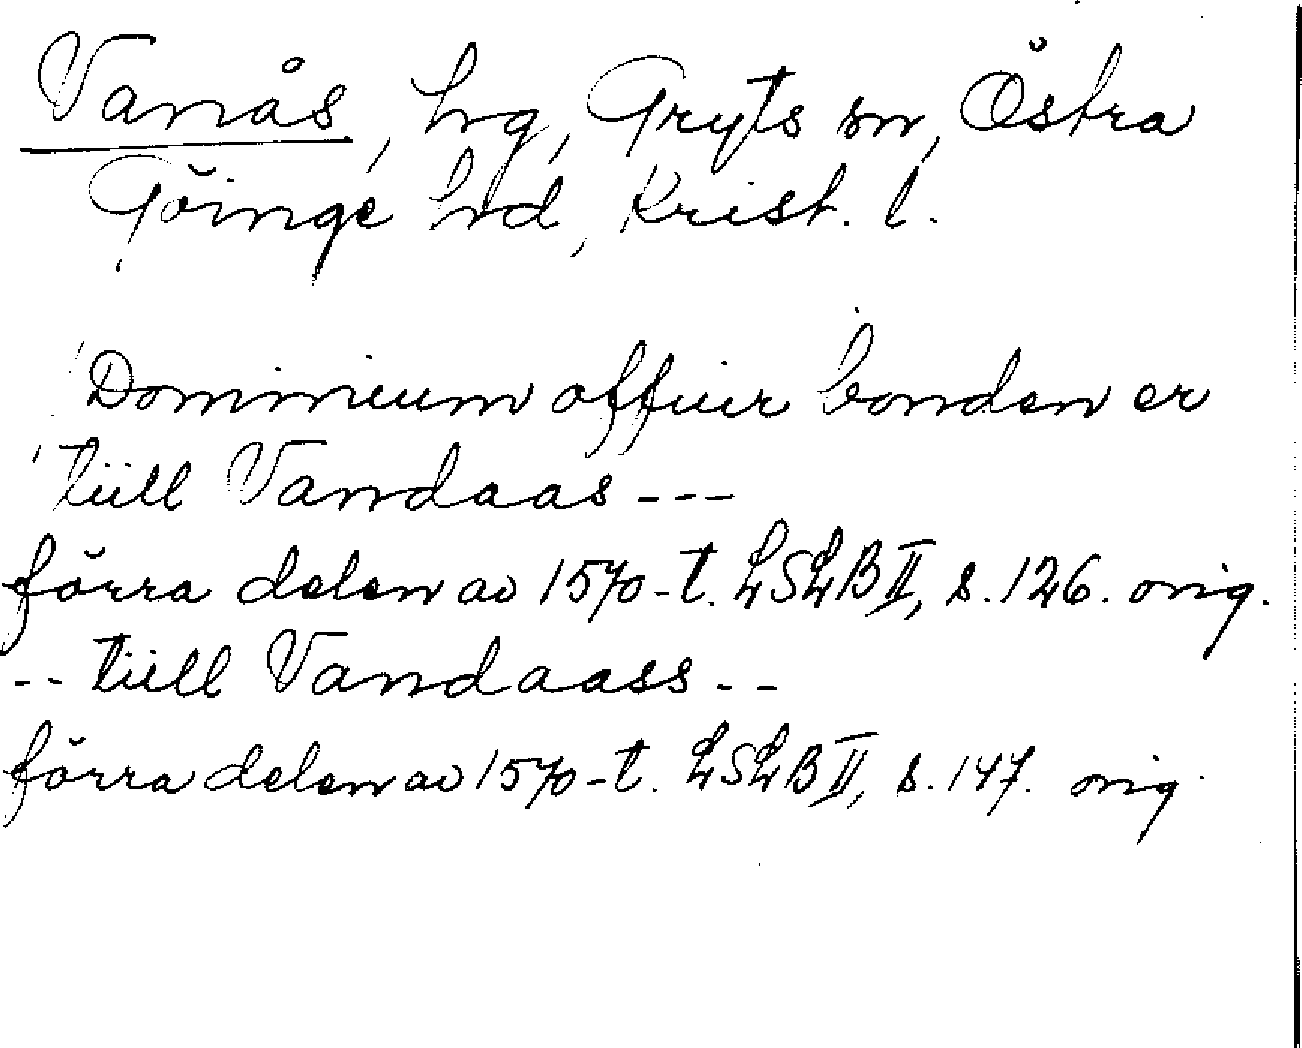 Vanås, hrg, Gryts sn, Östra
Göinge hrd, Krist. l.
Dominium offuer bonden er
tiill Vandaas ---
förra delen av 1570-t. LSLB II, s. 126. orig.
-- tiill Vandaass --
förra delen av 1570-t. LSLB II, s. 147. orig.